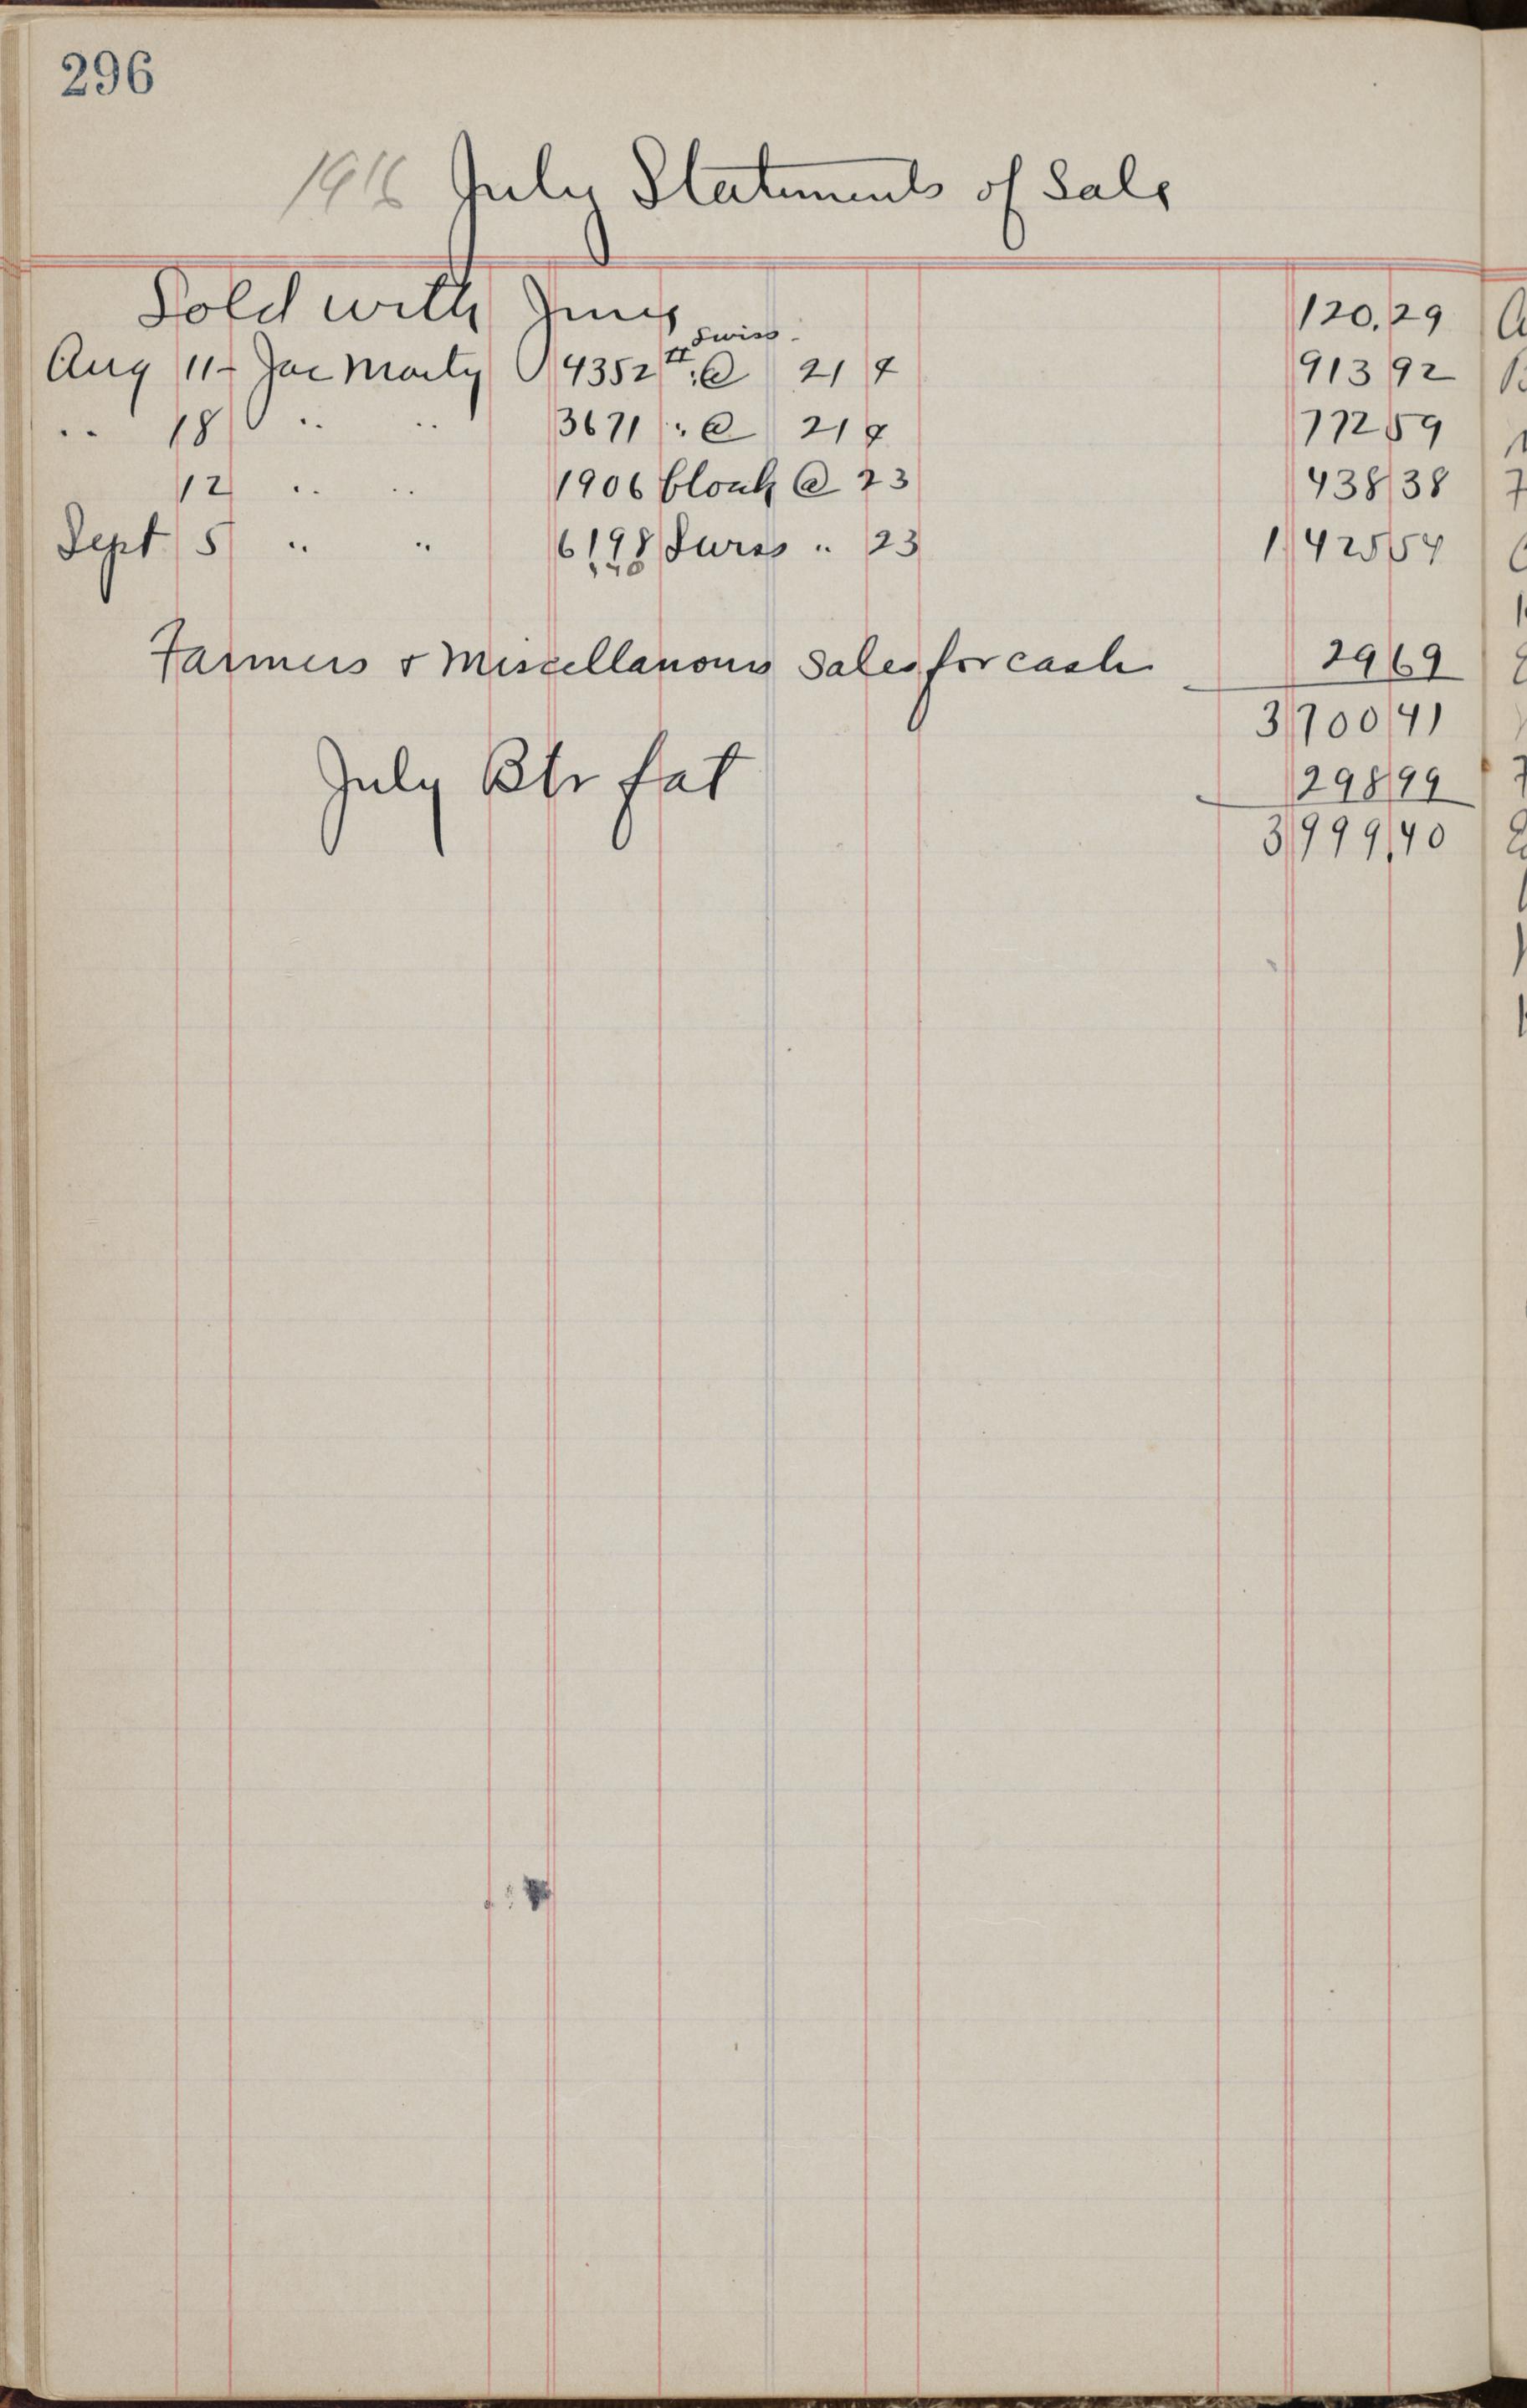 296
1916 July Statements of Sale
Sold with June 120.29
Swiss
Aug 11 - Jac Marty 4352 # : @ 21 ¢ 913 92
" 18 " " 3671 " @ 21 ¢ 772 59
12 " " 1906 Block @ 23 438 38
Sept 5 " " 6198 Swiss " 23 1 425 54
Farmers & Miscellanous Sales for cash 29 69
3 700 41
July Btr fat 298 99
3 999.40